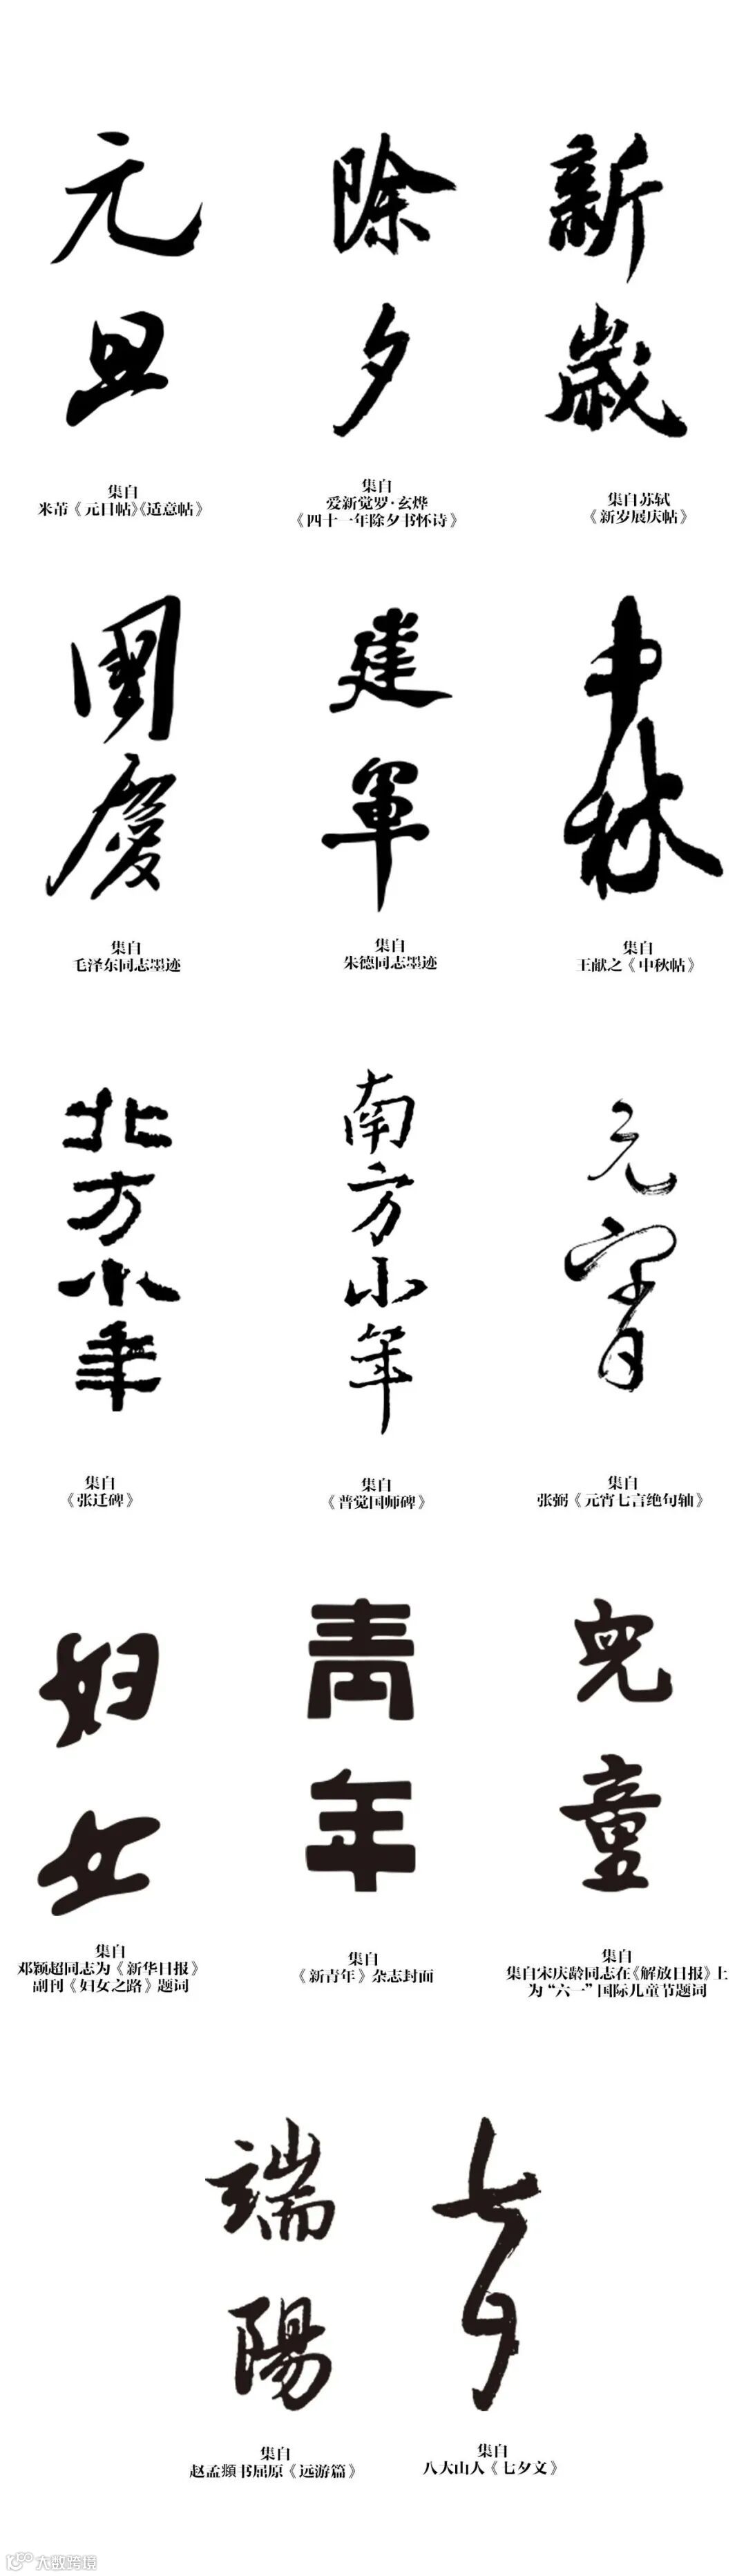 元旦
集自
米芾《元日帖》《适意帖》
除夕
集自
爱新觉罗·玄烨
《四十一年除夕书怀诗》
新歲
集自苏轼
《新岁展庆帖》
國慶
集自
毛泽东同志墨迹
建軍
集自
朱德同志墨迹
中秋
集自
王献之《中秋帖》
北方小年
集自
《张迁碑》
南方小年
集自
《普觉国师碑》
元宵
集自
张弼《元宵七言绝句轴》
妇女
集自
邓颖超同志为《新华日报》
副刊《妇女之路》题词
青年
集自
《新青年》杂志封面
兒童
集自
集自宋庆龄同志在《解放日报》上
为“六一”国际儿童节题词
端陽
集自
赵孟頫书屈原《远游篇》
七夕
集自
八大山人《七夕文》
大数跨境